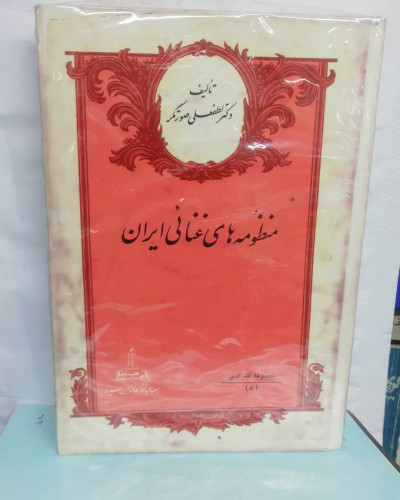 تألیف
دکتر لطفعلی صورتگر
منظومه‌های غنائی ایران
مجموعه نقد ادبی
(۵)